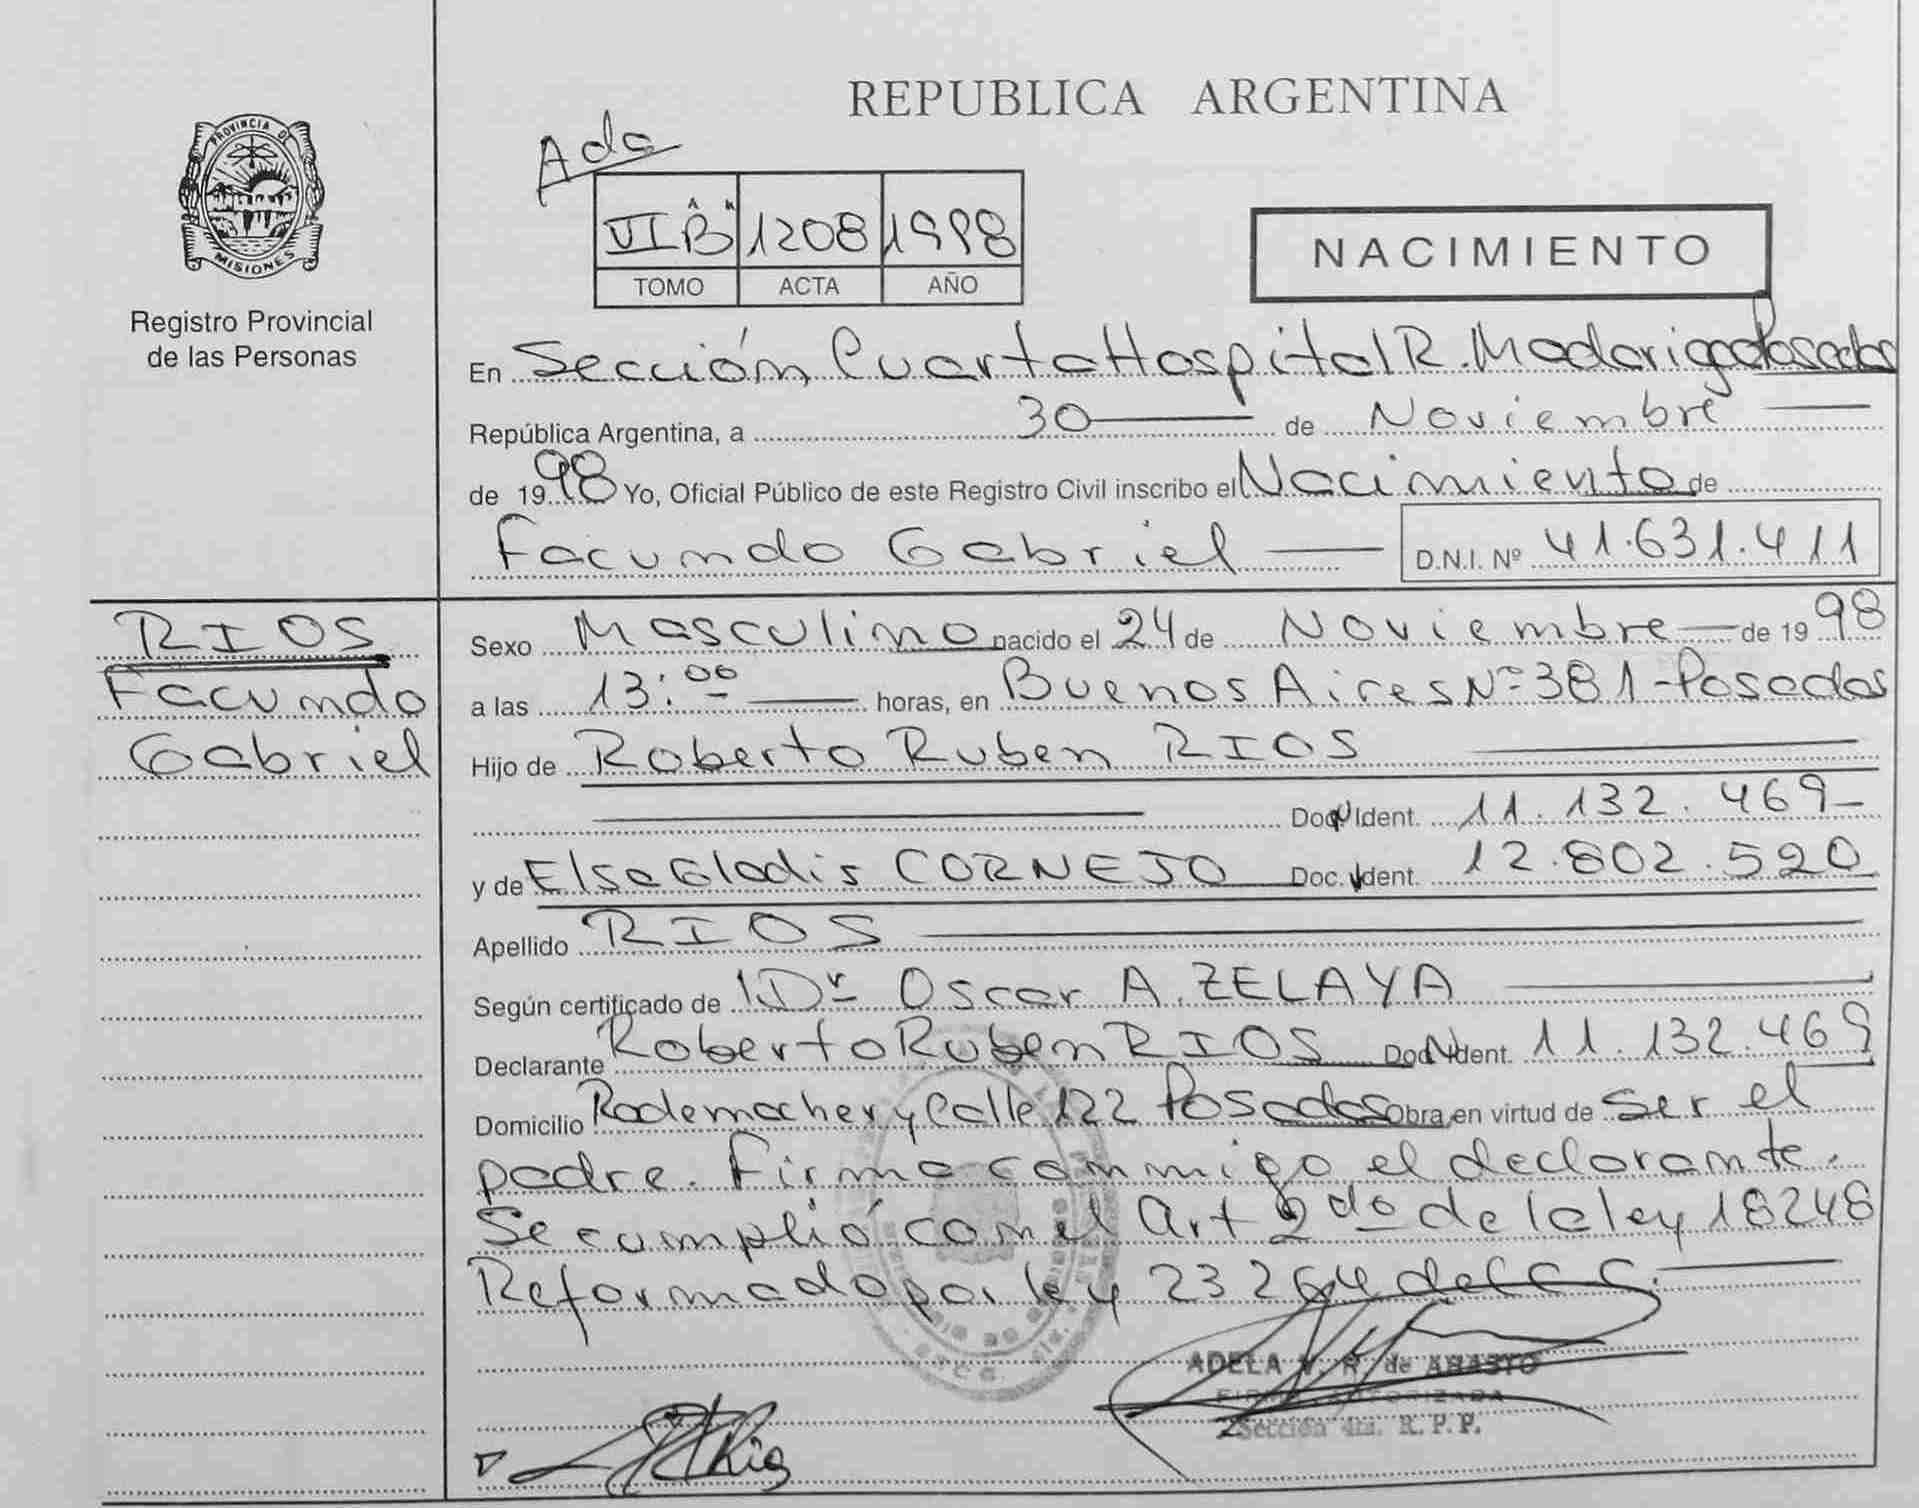 REPUBLICA ARGENTINA
PROVINCIA DE
MISIONES
Registro Provincial
de las Personas
Ada
VI "B" 1208 1998
TOMO ACTA AÑO
NACIMIENTO
En Sección Cuarta Hospital R. Madariaga Posadas
República Argentina, a 30 de Noviembre
de 1998 Yo, Oficial Público de este Registro Civil inscribo el Nacimiento de
Facundo Gabriel D.N.I. Nº 41.631.411
RIOS
Facundo
Gabriel
Sexo Masculino nacido el 24 de Noviembre de 1998
a las 13:00 horas, en Buenos Aires Nº 381 - Posadas
Hijo de Roberto Ruben RIOS
Doc. Ident. 11.132.469
y de Elsa Gladis CORNEJO Doc. Ident. 12.802.520
Apellido RIOS
Según certificado de Dr Oscar A. ZELAYA
Declarante Roberto Ruben RIOS Doc. Ident. 11.132.469
Domicilio Rademacher y Calle 122 Posadas Obra en virtud de ser el
padre. Firma conmigo el declarante.
Se cumplió con el Art 2do de la ley 18248
Reformado por ley 23264 del C C.
ADELA V. R. de
FIRMA AUTORIZADA
Sección 4ta. R. P. P.